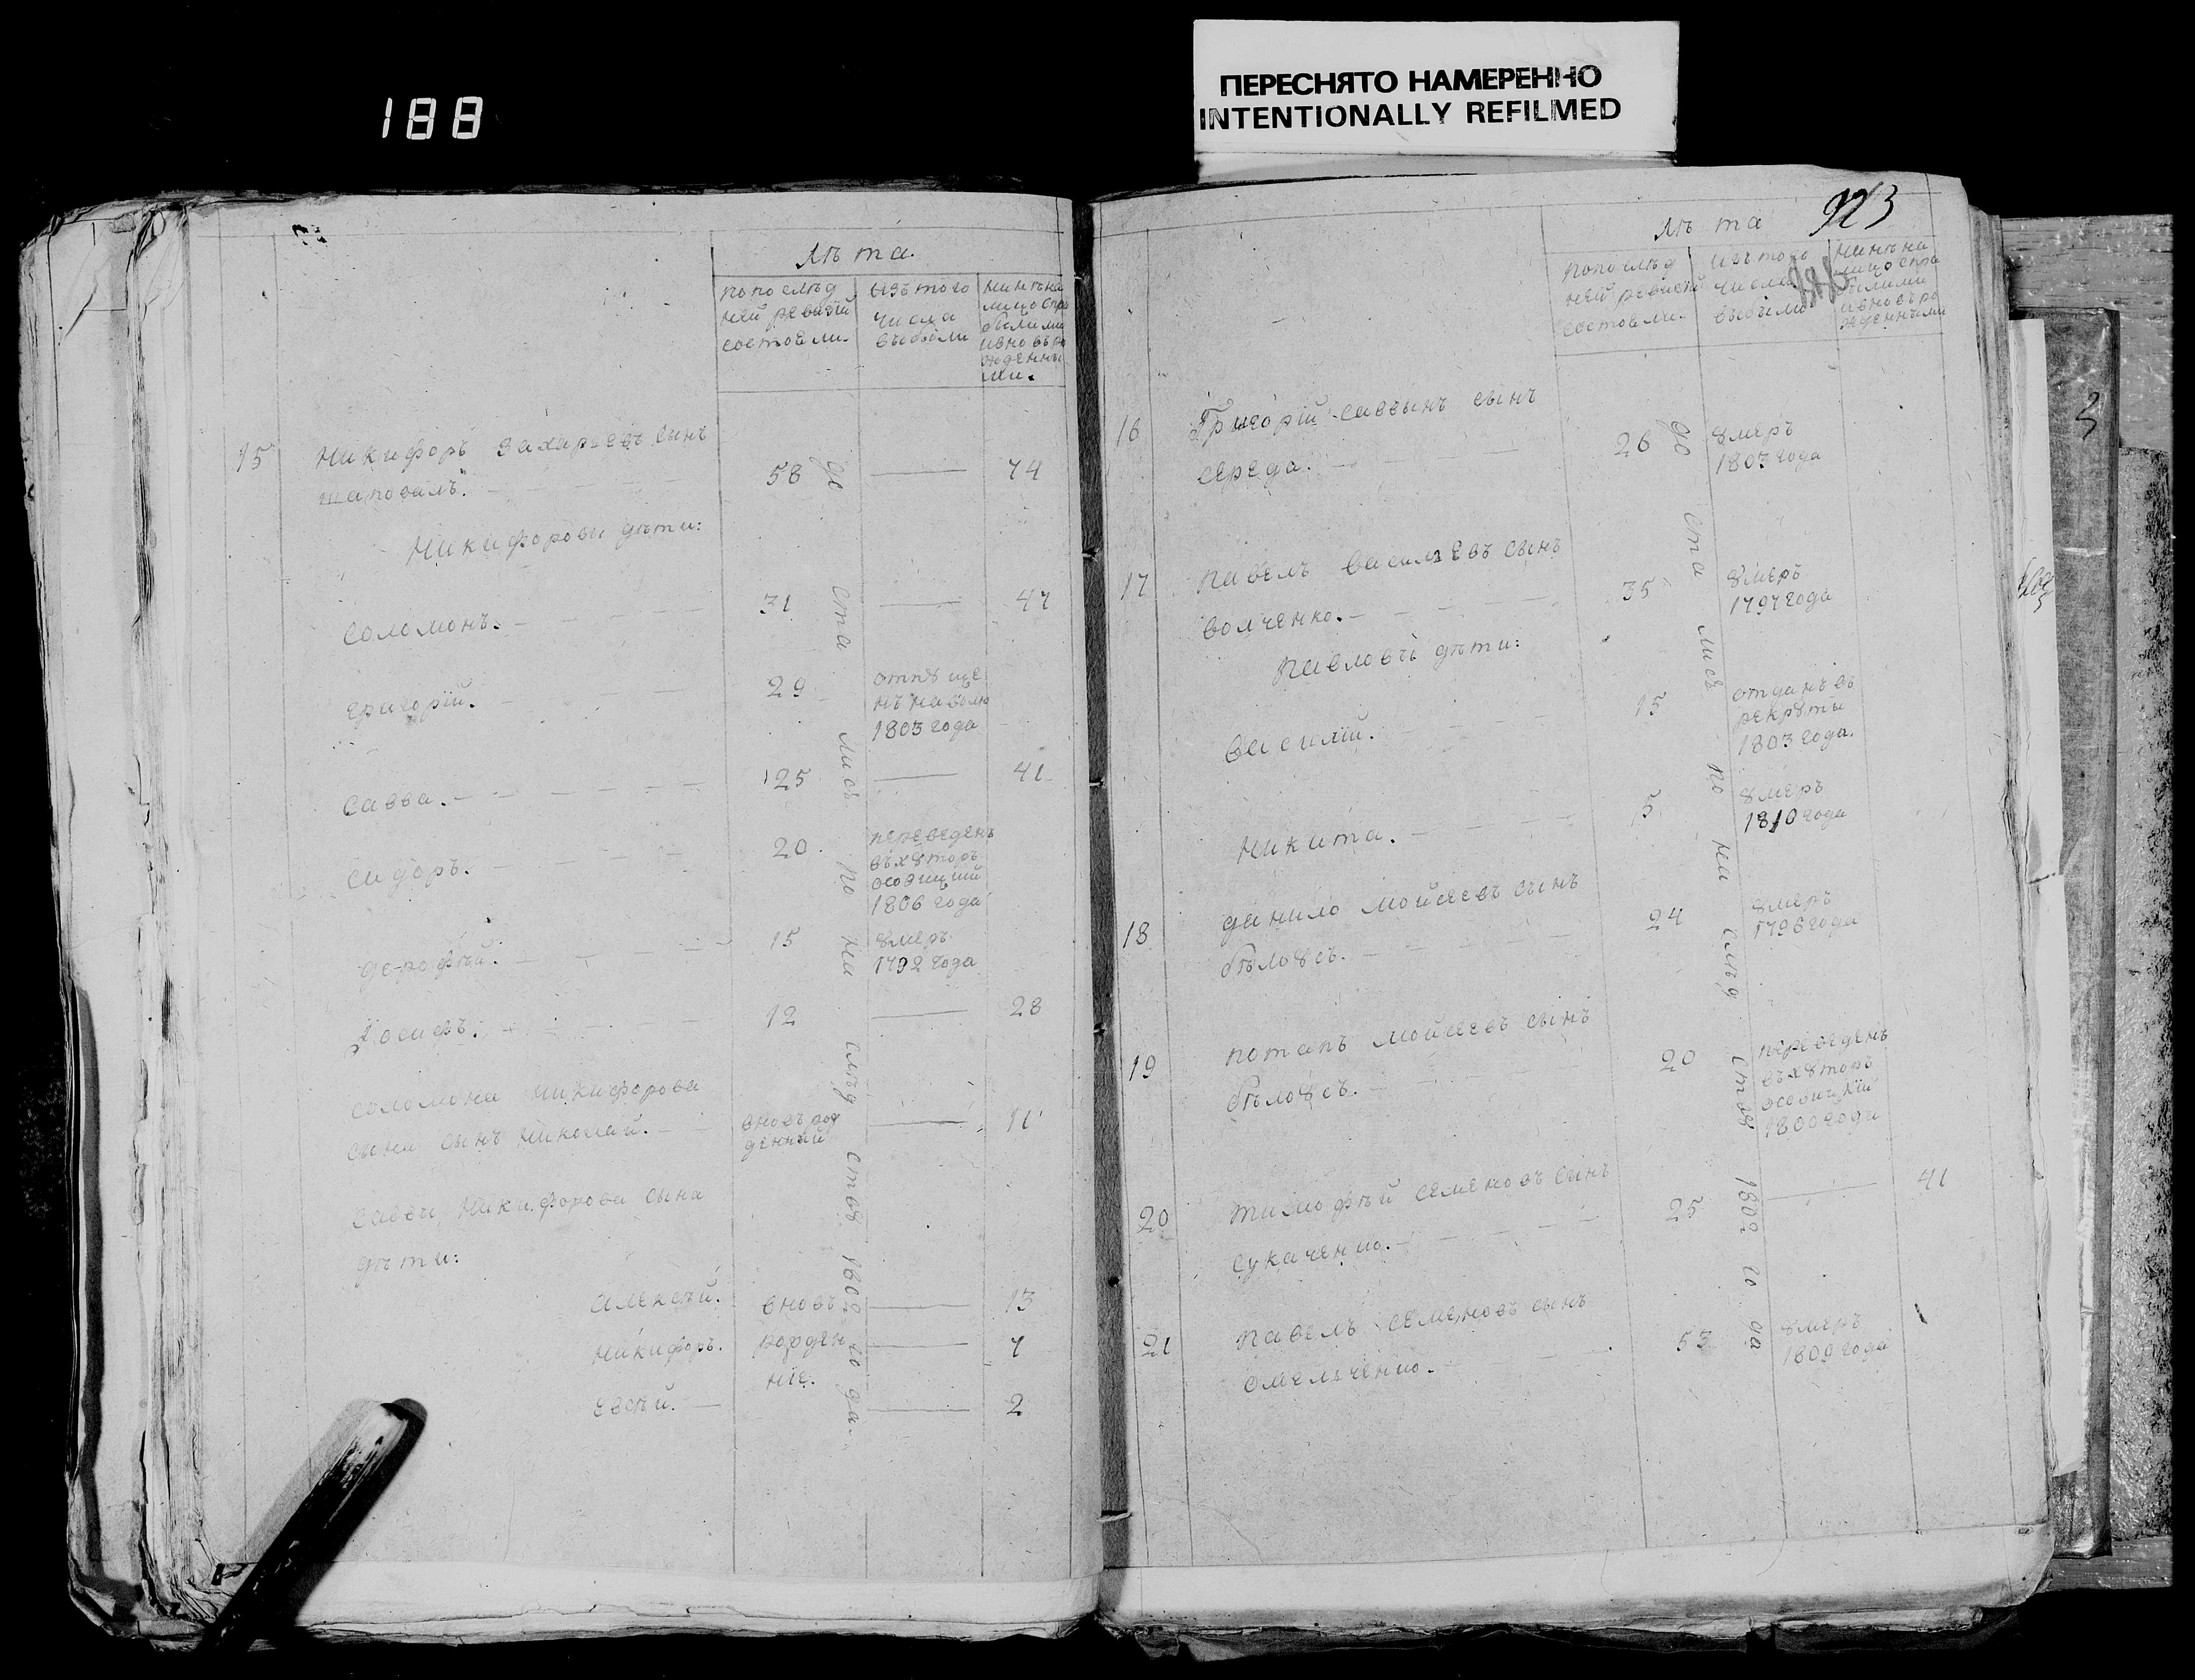 188
ПЕРЕСНЯТО НАМЕРЕННО
INTENTIONALLY REFILMED
лѣта.
попослѣд
ней ревизіи
состояли.
изъ того
числа
выбыли
нынѣ на
лицо спри
былими
ивновъро
жденны
ми.
15
Никифоръ Захарьевъ сынъ
шаповалъ.
58
74
Никифоровы дѣти:
соломонъ.
31
47
григорїй.
29
отпȣще
нъ наволю
1803 года
савва.
25
41
сидоръ.
20
переведенъ
въ хȣторъ
1806 года
дорофѣй.
15
ȣмеръ
1792 года
Іосифъ.
12
28
соломона Никифорова
сына сынъ николай.
вновърож
денный
11
саввы Никифорова сына
дѣти:
алексѣй.
вновь
13
никифоръ.
рожден
7
ные.
евсѣй.
2
до ста лисъ по на слѣд ствȣ 1802 го да.
923
лѣта
попослѣд
ней ревизіи
состояли.
изъ того
числа
выбыли
нынѣ на
лицо спри
былими
ивновъро
жденными
16
Григорїй саввынъ сынъ
середа.
26
ȣмеръ
1803 года
17
павелъ васильевъ сынъ
волченко.
35
ȣмеръ
1797 года
павловы дѣти:
василїй.
15
отданъ въ
рекрȣты
1803 года.
никита.
5
ȣмеръ
1810 года
18
данило мойсеевъ сынъ
бѣлоȣсъ.
24
ȣмеръ
1796 года
19
потапъ мойсеевъ сынъ
бѣлоȣсъ.
20
переведенъ
въ хȣторъ
1800 года
20
тимофѣй семеновъ сынъ
сукаченко.
25
41
21
павелъ семеновъ сынъ
омельченко.
53
ȣмеръ
1809 года
до ста лисъ по на слѣд ствȣ 1802 го да
3